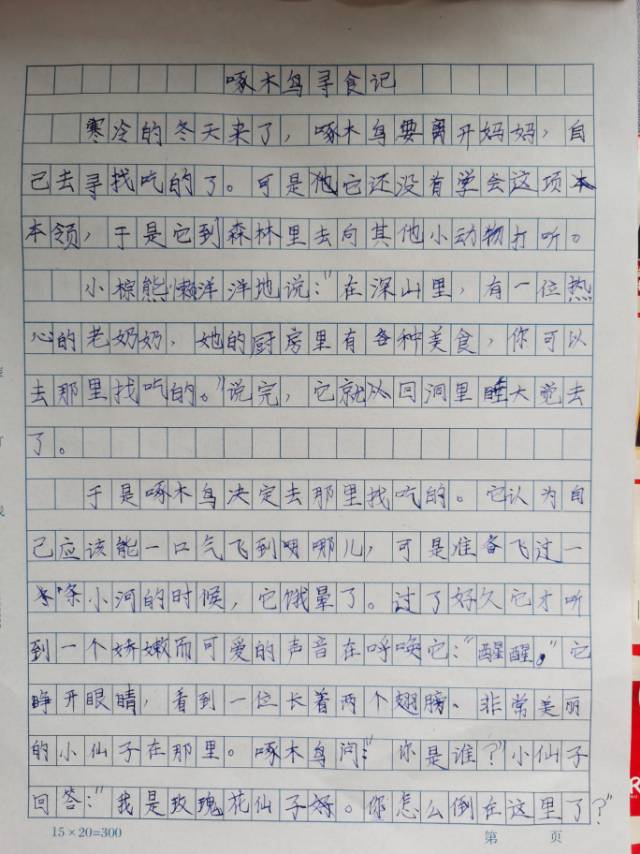 啄木鸟寻食记
寒冷的冬天来了，啄木鸟要离开妈妈，自
己去寻找吃的了。可是它还没有学会这项
本领，于是它到森林里去向其他小动物打听。
小棕熊懒洋洋地说：“在深山里，有一位热
心的老奶奶，她的厨房里有各种美食，你可以
去那里找吃的。”说完，它就从回洞里睡大觉去
了。
于是啄木鸟决定去那里找吃的。它认为自
己应该能一口气飞到哪儿，可是准备飞过一
条小河的时候，它饿晕了。过了好久它才听
到一个娇嫩而可爱的声音在呼唤它：“醒醒。”它
睁开眼睛，看到一位长着两个翅膀、非常美丽
的小仙子在那里。啄木鸟问：“你是谁？”小仙子
回答：“我是玫瑰花仙子。你怎么倒在这里了？”
15×20=300
第 页